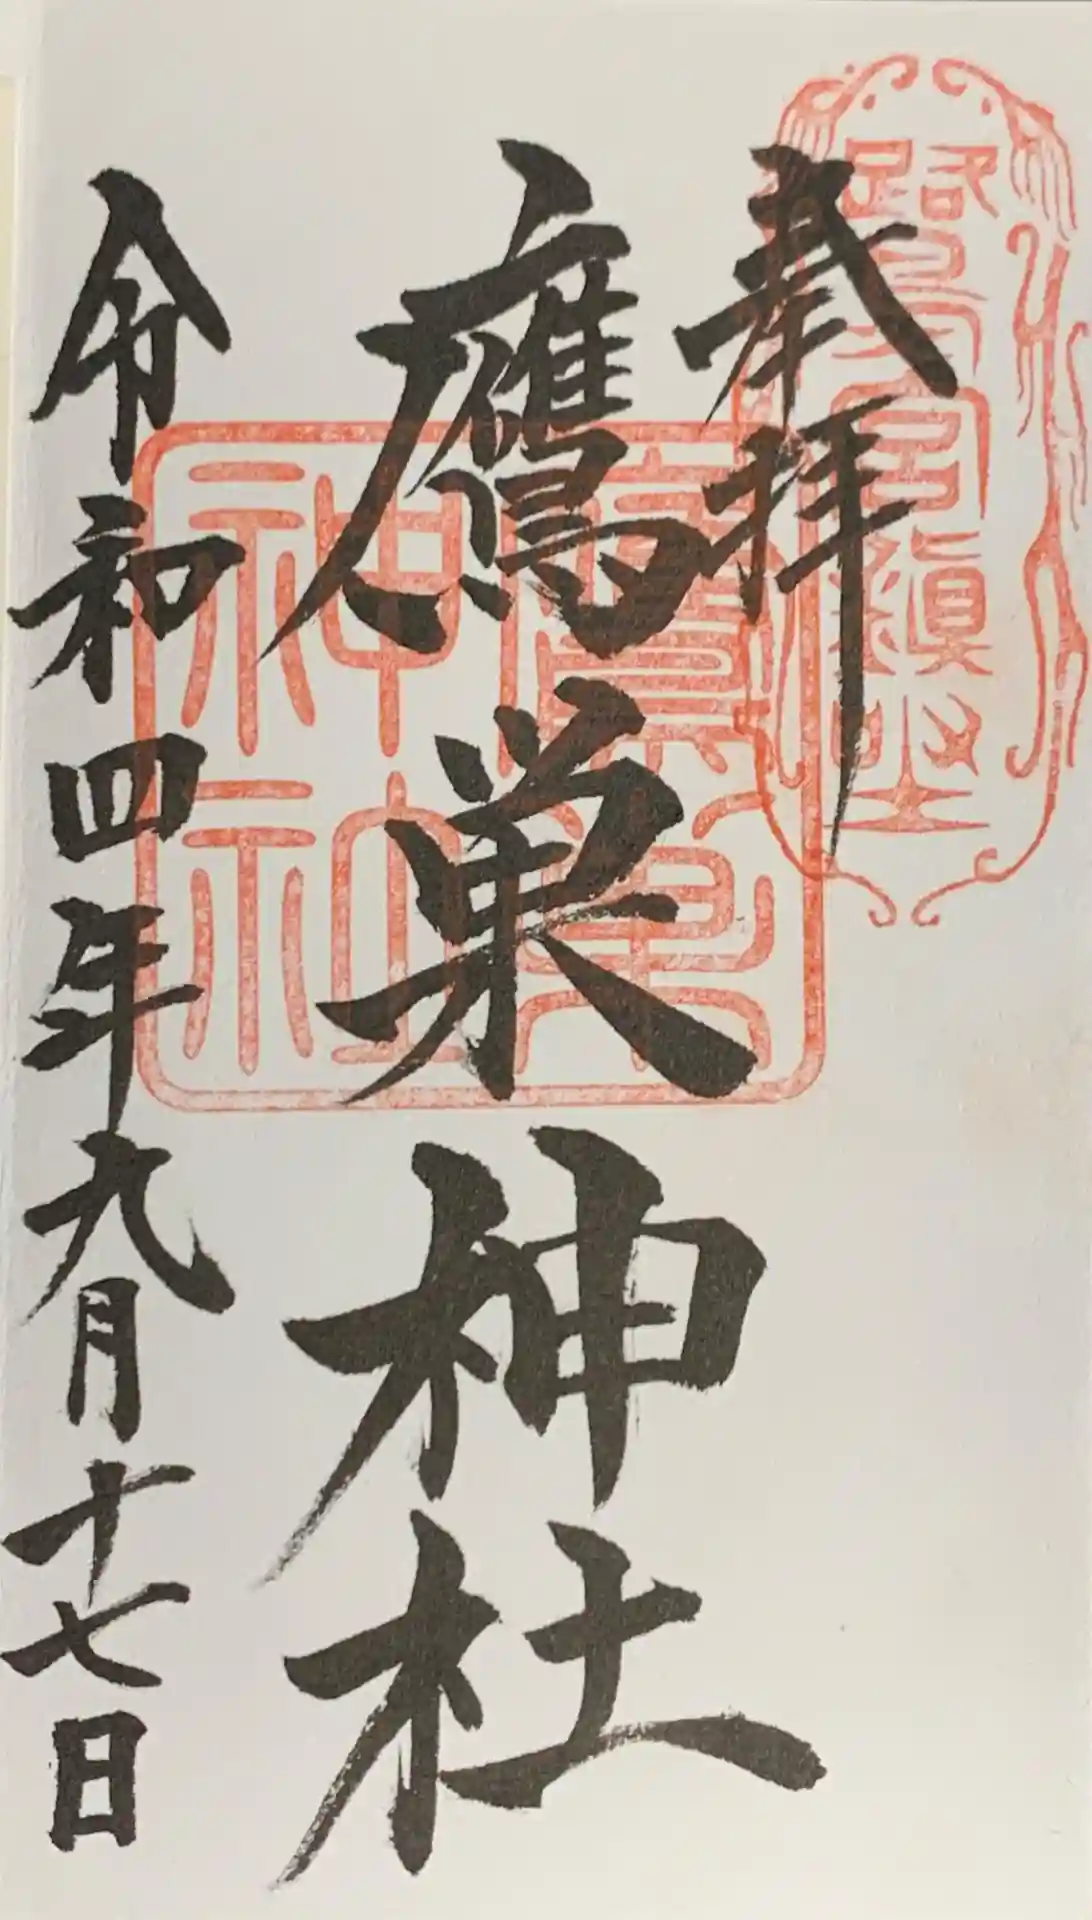 奉拝
鷹巣神社
令和四年九月十七日
鷹巣
神社